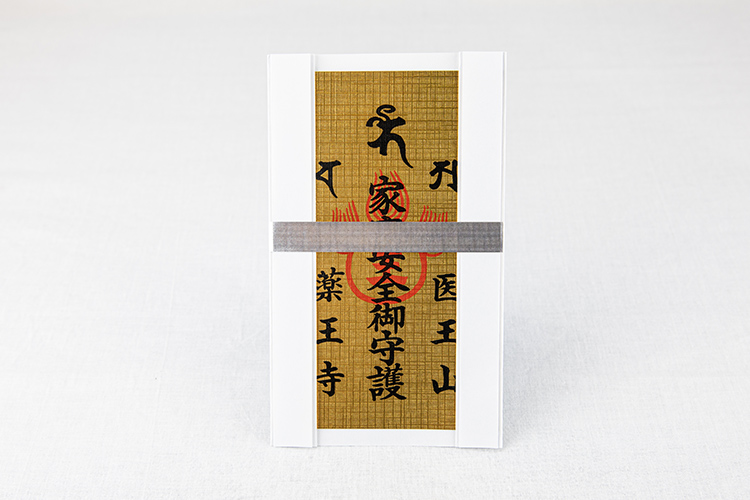 医王山
家安全御守護
薬王寺